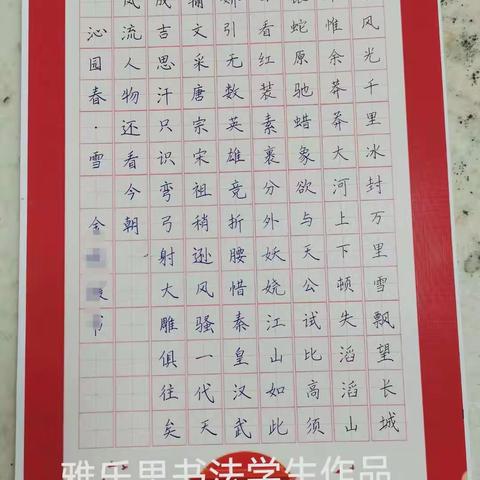 风光千里冰封万里雪飘望长城
惟余莽莽大河上下顿失滔滔山
蛇原驰蜡象欲与天公试比高须
看红装素裹分外妖娆江山如此
娇引无数英雄竞折腰惜秦皇汉武
输文采唐宗宋祖稍逊风骚一代天
成吉思汗只识弯弓射大雕俱往矣
风流人物还看今朝
沁园春·雪
雅乐思书法学生作品